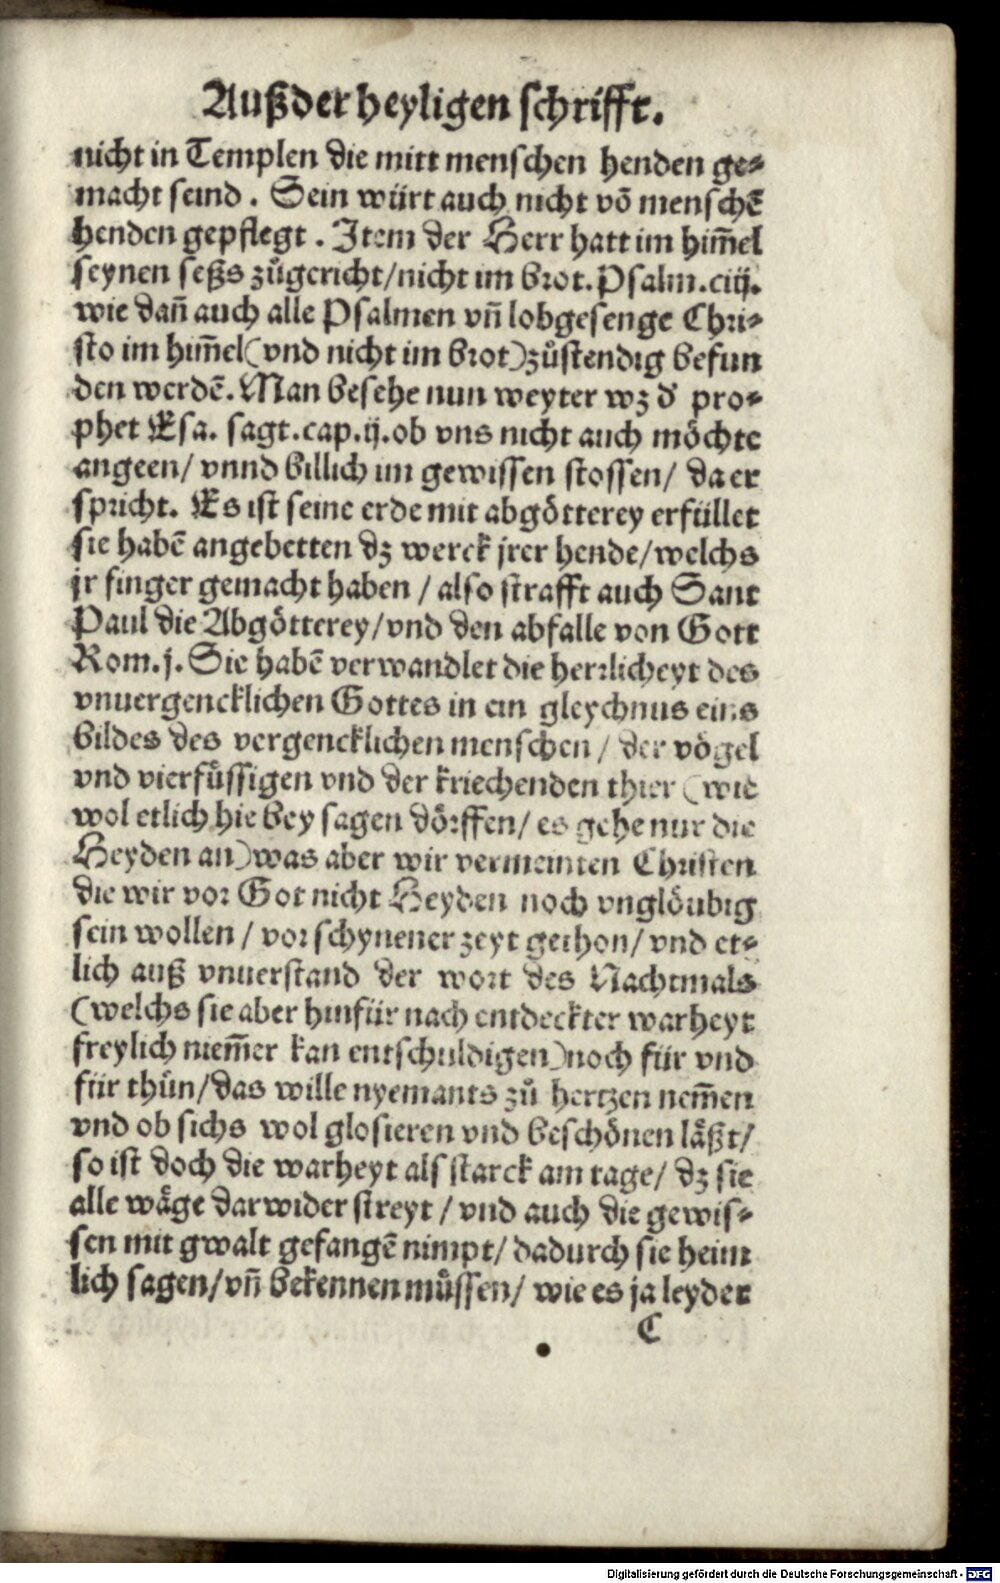 Auß der heyligen schrifft.
nicht in Templen die mitt menschen henden ge⸗
macht seind . Sein würt auch nicht võ menschẽ
henden gepflegt . Item der Herr hatt im him̃el
seynen seßs zůgericht/nicht im brot. Psalm.ciij.
wie dañ auch alle Psalmen vñ lobgesenge Chri⸗
sto im him̃el(vnd nicht im brot)zůstendig befun
den werdẽ. Man besehe nun weyter wz d' pro⸗
phet Esa. sagt.cap.ij.ob vns nicht auch möchte
angeen/ vnnd billich im gewissen stossen/ da er
spricht. Es ist seine erde mit abgötterey erfüllet
sie habẽ angebetten dz werck jrer hende/welchs
jr finger gemacht haben / also strafft auch Sant
Paul die Abgötterey/vnd den abfalle von Gott
Rom.j. Sie habẽ verwandlet die herrlicheyt des
vnuergencklichen Gottes in ein gleychnus eins
bildes des vergencklichen menschen / der vögel
vnd vierfůssigen vnd der kriechenden thier (wie
wol etlich hie bey sagen dörffen/ es gehe nur die
Heyden an)was aber wir vermeinten Christen
die wir vor Got nicht Heyden noch vnglöubig
sein wollen / vor schynener zeyt gethon/ vnd et⸗
lich auß vnuerstand der wort des Nachtmals
(welchs sie aber hinfür nach entdeckter warheyt
freylich niem̃er kan entschuldigen)noch für vnd
für thůn/das wille nyemants zů hertzen nem̃en
vnd ob sichs wol glosieren vnd beschönen läßt/
so ist doch die warheyt als starck am tage/ dz sie
alle wäge darwider streyt / vnd auch die gewis⸗
sen mit gwalt gefangẽ nimpt/ dadurch sie heim
lich sagen/vñ bekennen můssen/ wie es ja leyder
C
Digitalisierung gefördert durch die Deutsche Forschungsgemeinschaft - DFG